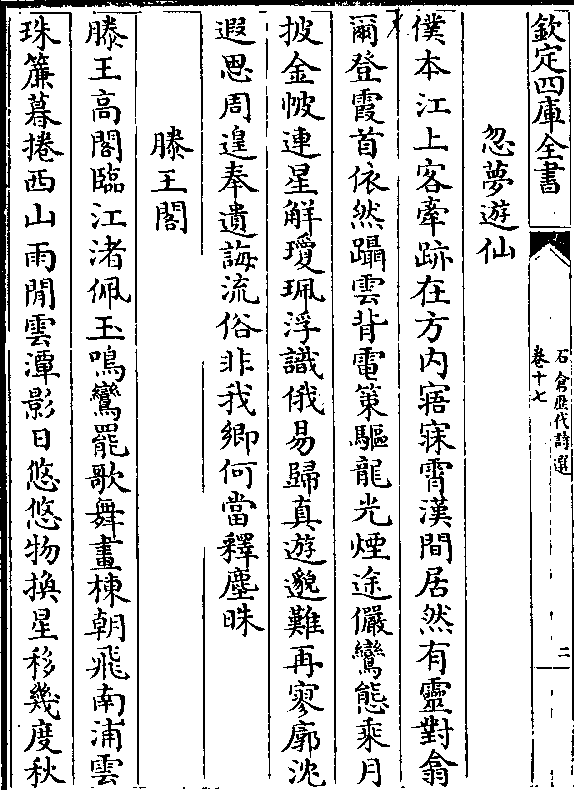 欽定四庫全書
石倉歷代詩選
卷十七
二
忽夢遊仙
僕本江上客牽跡在方内寤寐霄漢間居然有靈對翕
爾登霞首依然躡雲背電策驅龍光煙途儼鸞態乘月
披金帔連星解瓊珮浮識俄易歸真遊邈難再寥廓沈
遐思周遑奉遺誨流俗非我鄉何當釋塵昧
滕王閣
滕王高閣臨江渚佩玉鳴鸞罷歌舞畫棟朝飛南浦雲
珠簾暮捲西山雨閒雲潭影日悠悠物換星移幾度秋